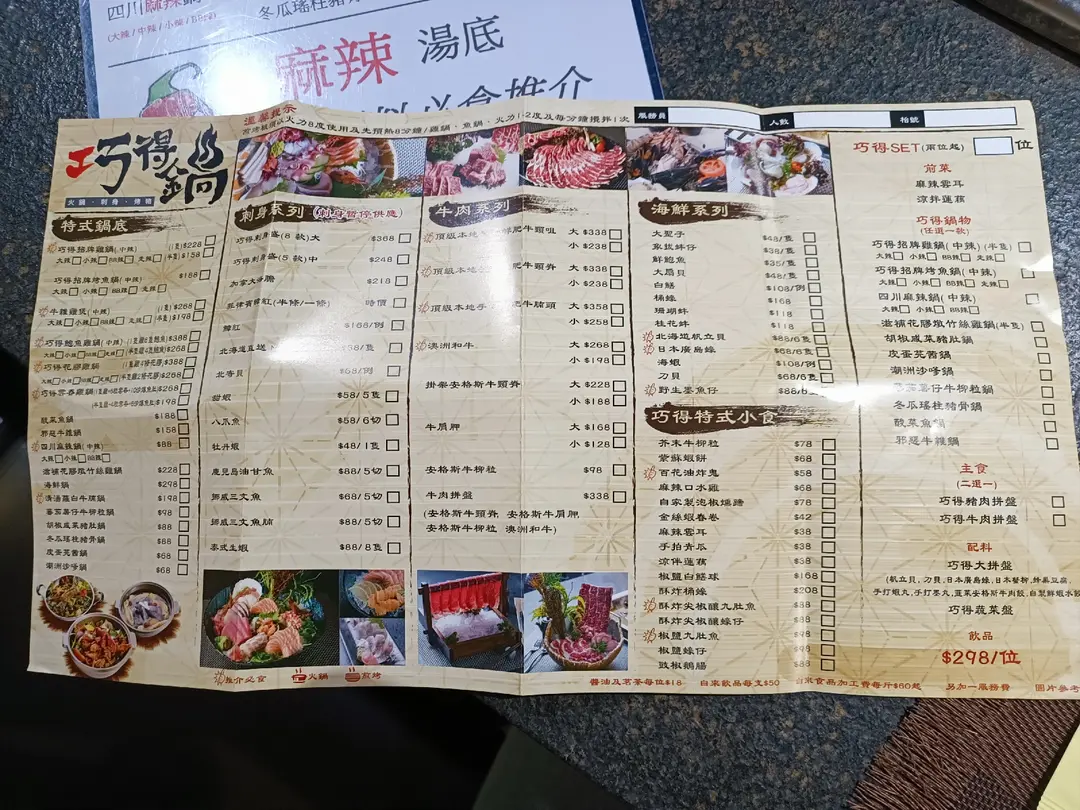 四川麻辣
(大辣/中辣/小辣/BB辣)
冬瓜瑤柱豬
麻辣 湯底
必食推介
溫馨提示
火力8度使用及先預熱8分鐘/雞鍋、魚鍋、火力1-2度及每分鐘攪拌1次
服務員
人數
枱號
巧得鍋
火鍋·刺身·烤物
特式鍋底
巧得招牌雞鍋(中辣) (1隻)$228
大辣 小辣 BB辣 走辣 (半隻)$158
巧得招牌烤魚鍋(中辣) $188
大辣 小辣 BB辣 走辣
牛雜雞煲(中辣) (1隻)$288
大辣 小辣 BB辣 走辣 (半隻)$198
巧得鮑魚雞鍋(中辣) $388
大辣 小辣 BB辣 走辣 $268
巧得花膠雞鍋 $388
大辣 小辣 BB辣 走辣 $268
$268
$198
酸菜魚鍋 $188
邪惡牛雜鍋 $158
四川麻辣鍋(中辣) $88
大辣 小辣 BB辣
滋補花膠燉竹絲雞鍋 $228
海鮮鍋 $298
清湯蘿白牛腩鍋 $198
蕃茄薯仔牛柳粒鍋 $98
胡椒咸菜豬肚鍋 $88
冬瓜瑤柱豬骨鍋 $88
皮蛋芫茜鍋 $68
潮洲沙嗲鍋 $68
刺身系列 (刺身暫停供應)
巧得刺身盛(8款)大 $368
巧得刺身盛(5款)中 $248
加拿大 $218
(半條/一條) 時價
$168/例
北海道直送
北寄貝 $68/例
甜蝦 $58/5隻
八爪魚 $58/6切
牡丹蝦 $48/1隻
鹿兒島油甘魚 $88/5切
挪威三文魚 $68/5切
挪威三文魚腩 $88/5切
泰式生蝦 $88/8隻
牛肉系列
頂級本地 肥牛頸咀 大 $338
小 $238
頂級本地 肥牛頸脊 大 $338
小 $238
頂級本地手 肥牛腩頭 大 $358
小 $258
澳洲和牛 大 $268
小 $198
掛架安格斯牛頸脊 大 $228
小 $188
牛肩胛 大 $168
小 $128
安格斯牛柳粒 $98
牛肉拼盤 $338
(安格斯牛頸脊 安格斯牛肩胛
安格斯牛柳粒 澳洲和牛)
海鮮系列
大聖子 $48/隻
象拔蚌仔 $38/隻
鮮鮑魚 $35/隻
大扇貝 $48/隻
白鱔 $108/例
桶蠔 $168
珊瑚蚌 $118
桂花蚌 $118
北海道帆立貝 $88/6隻
日本廣島蠔 $68/6隻
海蝦 $108/例
刀貝 $68/6隻
野生墨魚仔
巧得特式小食
芥末牛柳粒 $78
紫蘇蝦餅 $68
百花油炸鬼 $58
麻辣口水雞 $68
自家製泡椒燻蹄 $78
金絲蝦春卷 $42
麻辣雲耳 $38
手拍青瓜 $38
涼伴蓮藕 $38
椒鹽白鱔球 $168
酥炸桶蠔 $208
酥炸尖椒釀九肚魚 $88
酥炸尖椒釀蠔仔 $88
椒鹽九肚魚 $98
椒鹽蠔仔 $98
豉椒鵝腸 $88
巧得SET(兩位起) 位
前菜
麻辣雲耳
涼拌蓮藕
巧得鍋物
(任選一款)
巧得招牌雞鍋(中辣)(半隻)
大辣 小辣 BB辣 走辣
巧得招牌烤魚鍋(中辣)
大辣 小辣 BB辣 走辣
四川麻辣鍋(中辣)
大辣 小辣 BB辣
滋補花膠燉竹絲雞鍋(半隻)
胡椒咸菜豬肚鍋
皮蛋芫茜鍋
潮洲沙嗲鍋
蕃茄薯仔牛柳粒鍋
冬瓜瑤柱豬骨鍋
酸菜魚鍋
邪惡牛雜鍋
主食
(二選一)
巧得豬肉拼盤
巧得牛肉拼盤
配料
巧得大拼盤
(帆立貝,刀貝,日本廣島蠔,日本蟹柳,
手打蝦丸,手打墨丸,韮菜安格斯牛肉餃,自製鮮蝦水餃
巧得蔬菜盤
飲品
$298/位
推介必食 火鍋 煎烤
醬油及茗茶每位$18 自來飲品每支$50 自來食品加工費每斤$60起 另加一服務費 圖片參考